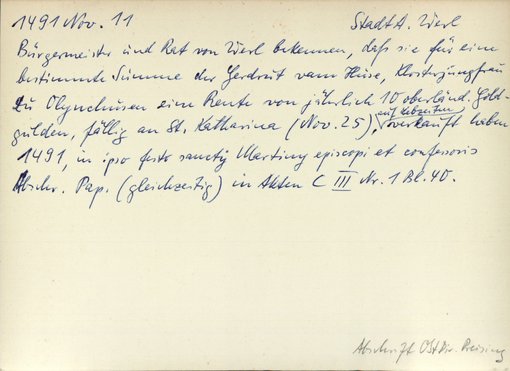 1491 Nov. 11 Stadt A. Werl
Bürgermeister und Rat von Werl bekennen, daß sie für eine
bestimmte Summe der Gerdrut vam Huse, Klosterjungfrau
zu Olynchusen eine Rente von jährlich 10 oberländ. Gold-
auf Lebzeiten
gulden, fällig an St. Katharina (Nov. 25), verkauft haben
1491, in ipso festo sancty Martiny episcopi et confessoris
Abschr. Pap. (gleichzeitig) in Akten C III Nr. 1 Bl. 40.
Abschrift OStDir. Preising